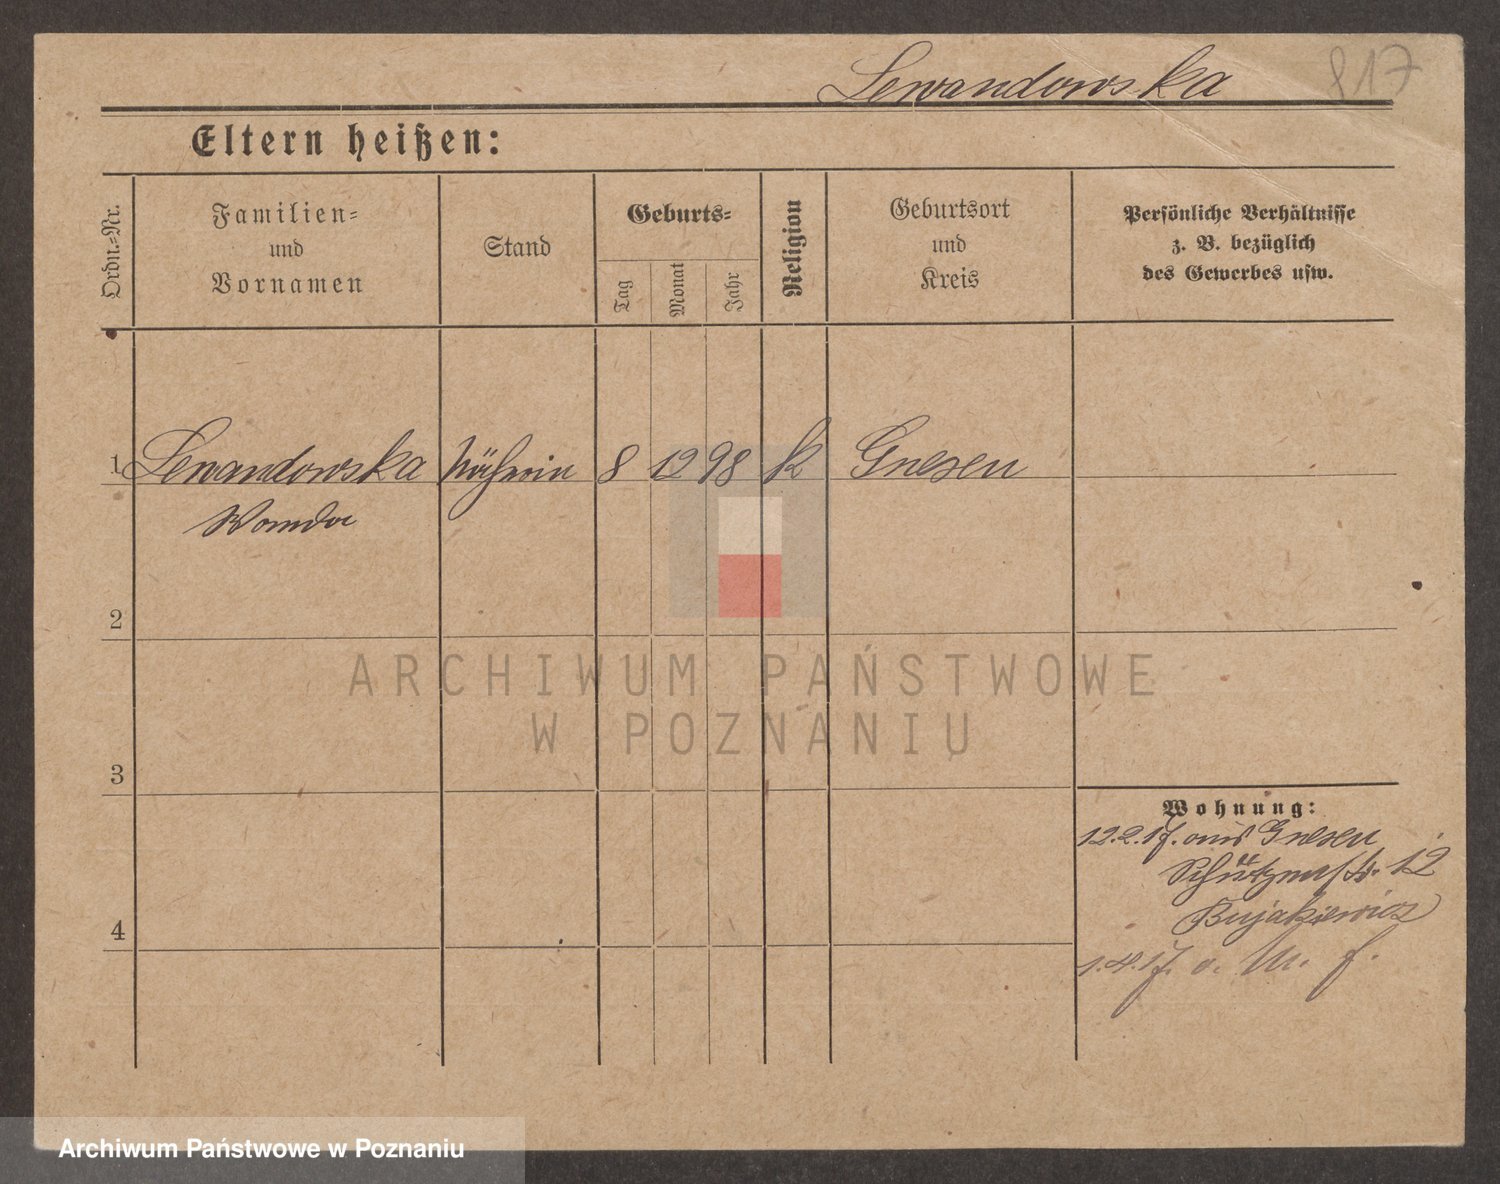 Lewandowska 817
Eltern heißen:
Ordn.=Nr.
Familien=
und
Vornamen
Stand
Geburts=
Tag
Monat
Jahr
Religion
Geburtsort
und
Kreis
Persönliche Verhältnisse
z. B. bezüglich
des Gewerbes usw.
1 Lewandowska Näherin 8 12 98 k Gnesen
Wanda
2
3
4
Wohnung:
12.2.17. aus Gnesen
Schützenstr. 12
Bujakiewicz
1.4.17. o.
ARCHIWUM PAŃSTWOWE
W POZNANIU
Archiwum Państwowe w Poznaniu